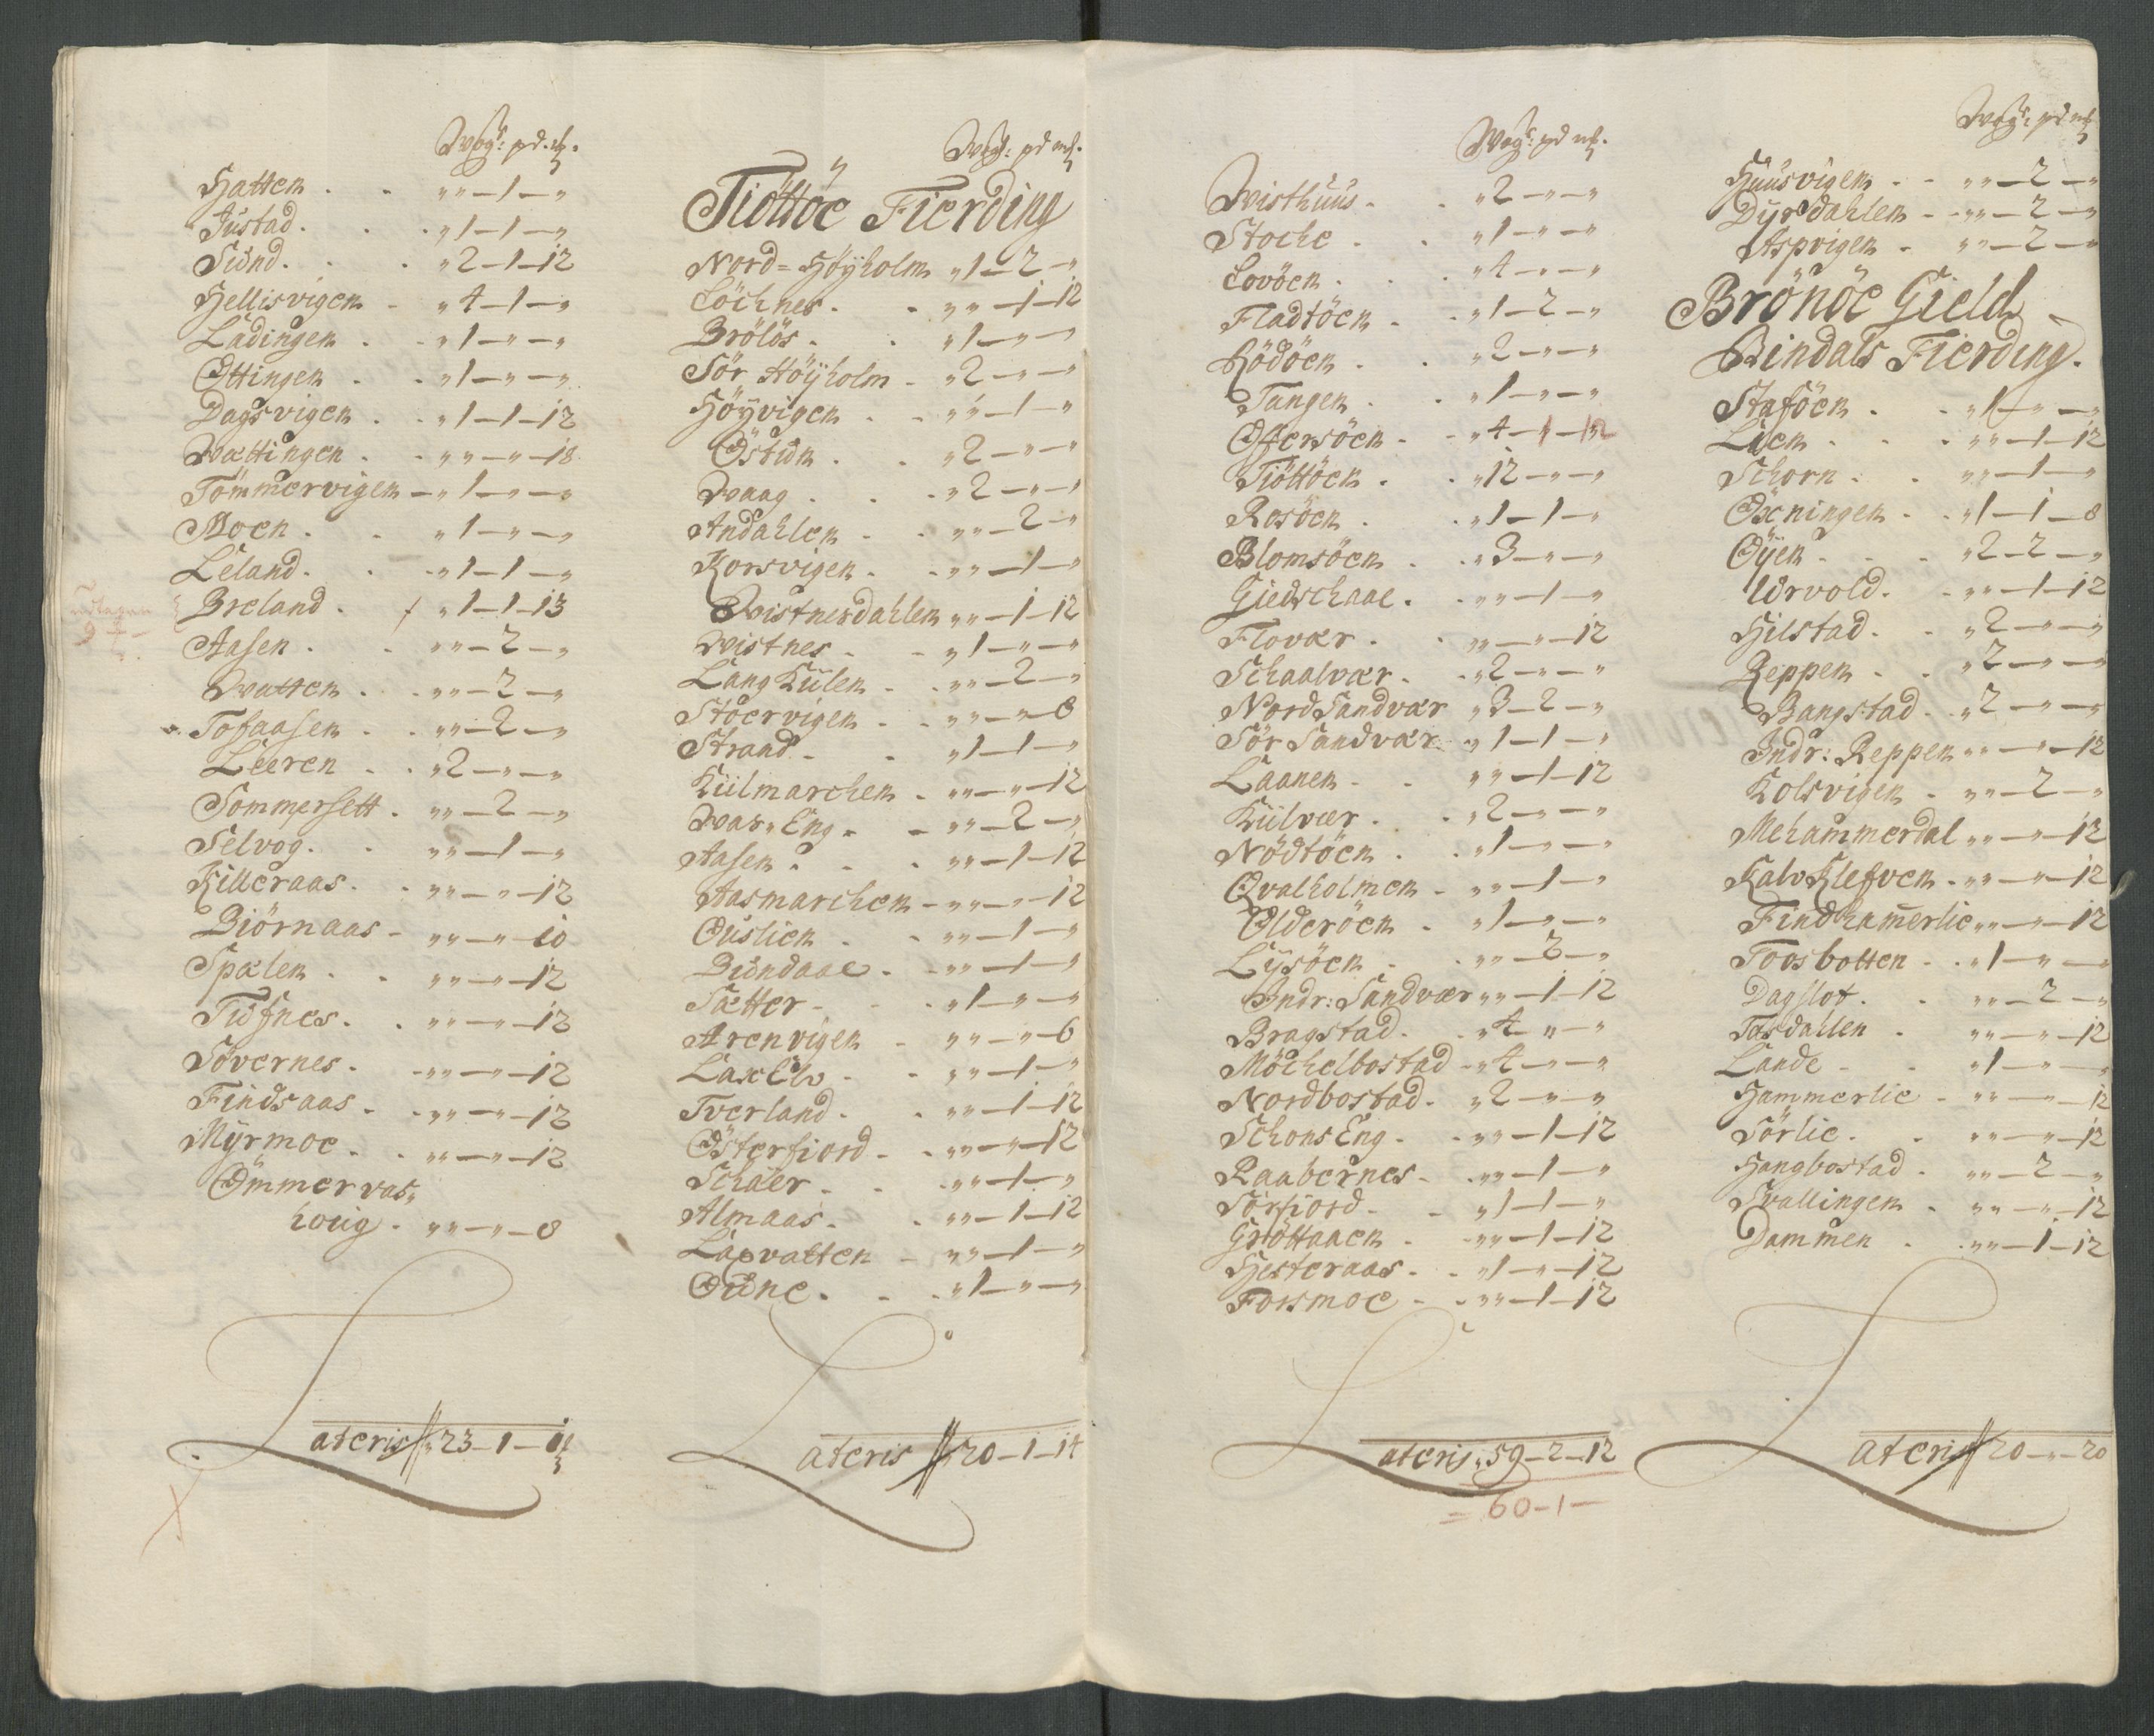 Wog: pd. mk.
Hatten . . „ „ — 1 — „
Justad . . „ 1 — 1 — „
Siund . . „ 2 — 1 — 12
Hellisvigen - „ 4 — 1 — „
Ladingen . . „ 1 — „ — „
Ottingen . . „ 1 — „ — „
Dagsvigen . . „ 1 — 1 — 12
Wættingen . . „ „ — „ — 18
Tömmervigen — „ 1 — „ — „
Moen . . „ 1 — „ — „
Leland . . „ 1 — 1 — „
Breland . „ 1 — 1 — 13
Aasen . . „ „ — 2 — „
Watten . . „ „ — 2 — „
Tofaasen . . „ „ — 2 — „
Leeren . . „ 2 — „ — „
Sommersett . „ „ — 2 — „
Selvog . . „ „ — 1 — „
Killeraas . . „ „ — „ — 12
Biörnaas - „ „ — „ — 10
Spælen . . „ „ — „ — 12
Tiufnes . . „ „ — „ — 12
Sövernes . . „ „ — „ — 12
Findsaas . . „ „ — „ — 12
Myrmoe . . „ „ — „ — 12
Ömmervas„
houg . „ „ — „ — 8
Lateris „ 23 — 1 —
Wog: pd mk.
Tiöttöe Fierding
Nord= Höyholm „ 1 — 2 — „
Löchnes . . „ „ — 1 — 12
Brölös . . „ 1 — „ — „
Sör Höyholm - „ 2 — „ — „
Höyvigen . . „ „ — 1 — „
Östun . . „ 2 — „ — „
Waag . . . „ 2 — „ — „
Andahlen . . „ „ — 2 — „
Korsvigen . . „ „ — 1 — „
Wistnesdahlen „ „ — 1 — 12
Wistnes . - „ 1 — „ — „
Lang Külen . . „ „ — 2 — „
Stöervigen . . „ „ — „ — 8
Strand . . „ 1 — 1 — „
Külmarchen . „ „ — „ — 12
Was„ Eng . - „ „ — 2 — „
Aasen . . . „ „ — 1 — 12
Aasmarchen - „ „ — „ — 12
Ouslien . . „ „ — 1 — „
Diundaae . . „ „ — 1 — „
Sætter - . . „ 1 — „ — „
Arenvigen - „ „ — „ — 6
Lax Elv . . „ „ — 1 — „
Tverland . . „ „ — 1 — 12
Österfiord - . „ „ — „ — 12
Schäer . . „ „ — 1 — „
Almaas . . „ „ — 1 — 12
Lapvatten - „ „ — 1 — „
Oune . . . „ 1 — „ — „
Lateris „ 20 — 1 — 14
Wog: pd mk.
Wisthuus . . „ 2 — „ — „
Stoche . . „ 1 — „ — „
Lovöen . . „ 4 — „ — „
Fladtöen . . „ 1 — 2 — „
Rödöen . . „ 2 — „ — „
Tangen . . „ 1 — „ — „
Offersöen - - „ 4 — 1 — 12
Tiöttöen . . „ 12 — „ — „
Rosöen . . „ 1 — 1 — „
Blomsöen . . „ 3 — „ — „
Giedschaae . . „ „ — 1 — „
Flovær . . „ „ — „ — 12
Schaalvær . . „ 2 — „ — „
Nord Sandvær „ 3 — 2 — „
Sör Sandvær „ 1 — 1 — „
Laanen . . „ „ — 1 — 12
Külvær . . „ 2 — „ — „
Nödtöen . . „ 1 — „ — „
Qvalholmen - „ „ — 1 — „
Olderöen . „ 1 — „ — „
Lysöen . . „ „ — 3 — „
Indr: Sandvær „ „ — 1 — 12
Bragstad . . „ 4 — „ — „
Möchelbostad - „ 4 — „ — „
Nordbostad . „ 2 — „ — „
Schons Eng . . „ „ — 1 — 12
Raabernes - . „ „ — 1 — „
Sörfiord - - „ 1 — 1 — „
Gröttaaen . . „ „ — 1 — 12
Hesteraas . . „ 1 — „ — 12
Forsmoe - . „ „ — 1 — 12
Lateris „ 59 — 2 — 12
= 60 — 1 —
Wog: pd mk
Huusvigen - - „ „ — 2 — „
Dyrdahlen - - „ „ — 2 — „
Aspvigen . „ „ — 2 — „
Brönöe Gield
Bindals Fierding.
Staföen . . „ 1 — „ — „
Lien . . . „ „ — 1 — 12
Schorn . . „ „ — 1 — „
Öxningen . . „ 1 — 1 — 8
Öyen . . . „ 2 — 2 — „
Urvold . . „ „ — 1 — 12
Hilstad . . „ 2 — „ — „
Reppen . . „ 2 — „ — „
Bangstad . . „ 2 — „ — „
Indr: Reppen „ „ — „ — 12
Kolsvigen . „ „ — 2 — „
Mehammerdal „ „ — „ — 12
Kalv Klefven . „ „ — „ — 12
Findhamerlie „ „ — „ — 12
Toosbotten - . „ 1 — „ — „
Dagslot . . „ „ — 2 — „
Tasdahlen . „ „ — „ — 12
Lande - . „ 1 — „ — „
Hammerlie - „ „ — „ — 12
Sörlie . . „ „ — „ — 12
Hangbostad . „ „ — 2 — „
Svallingen . „ „ — „ — 12
Dammen . . „ „ — 1 — 12
Lateris „ 20 — „ — 20